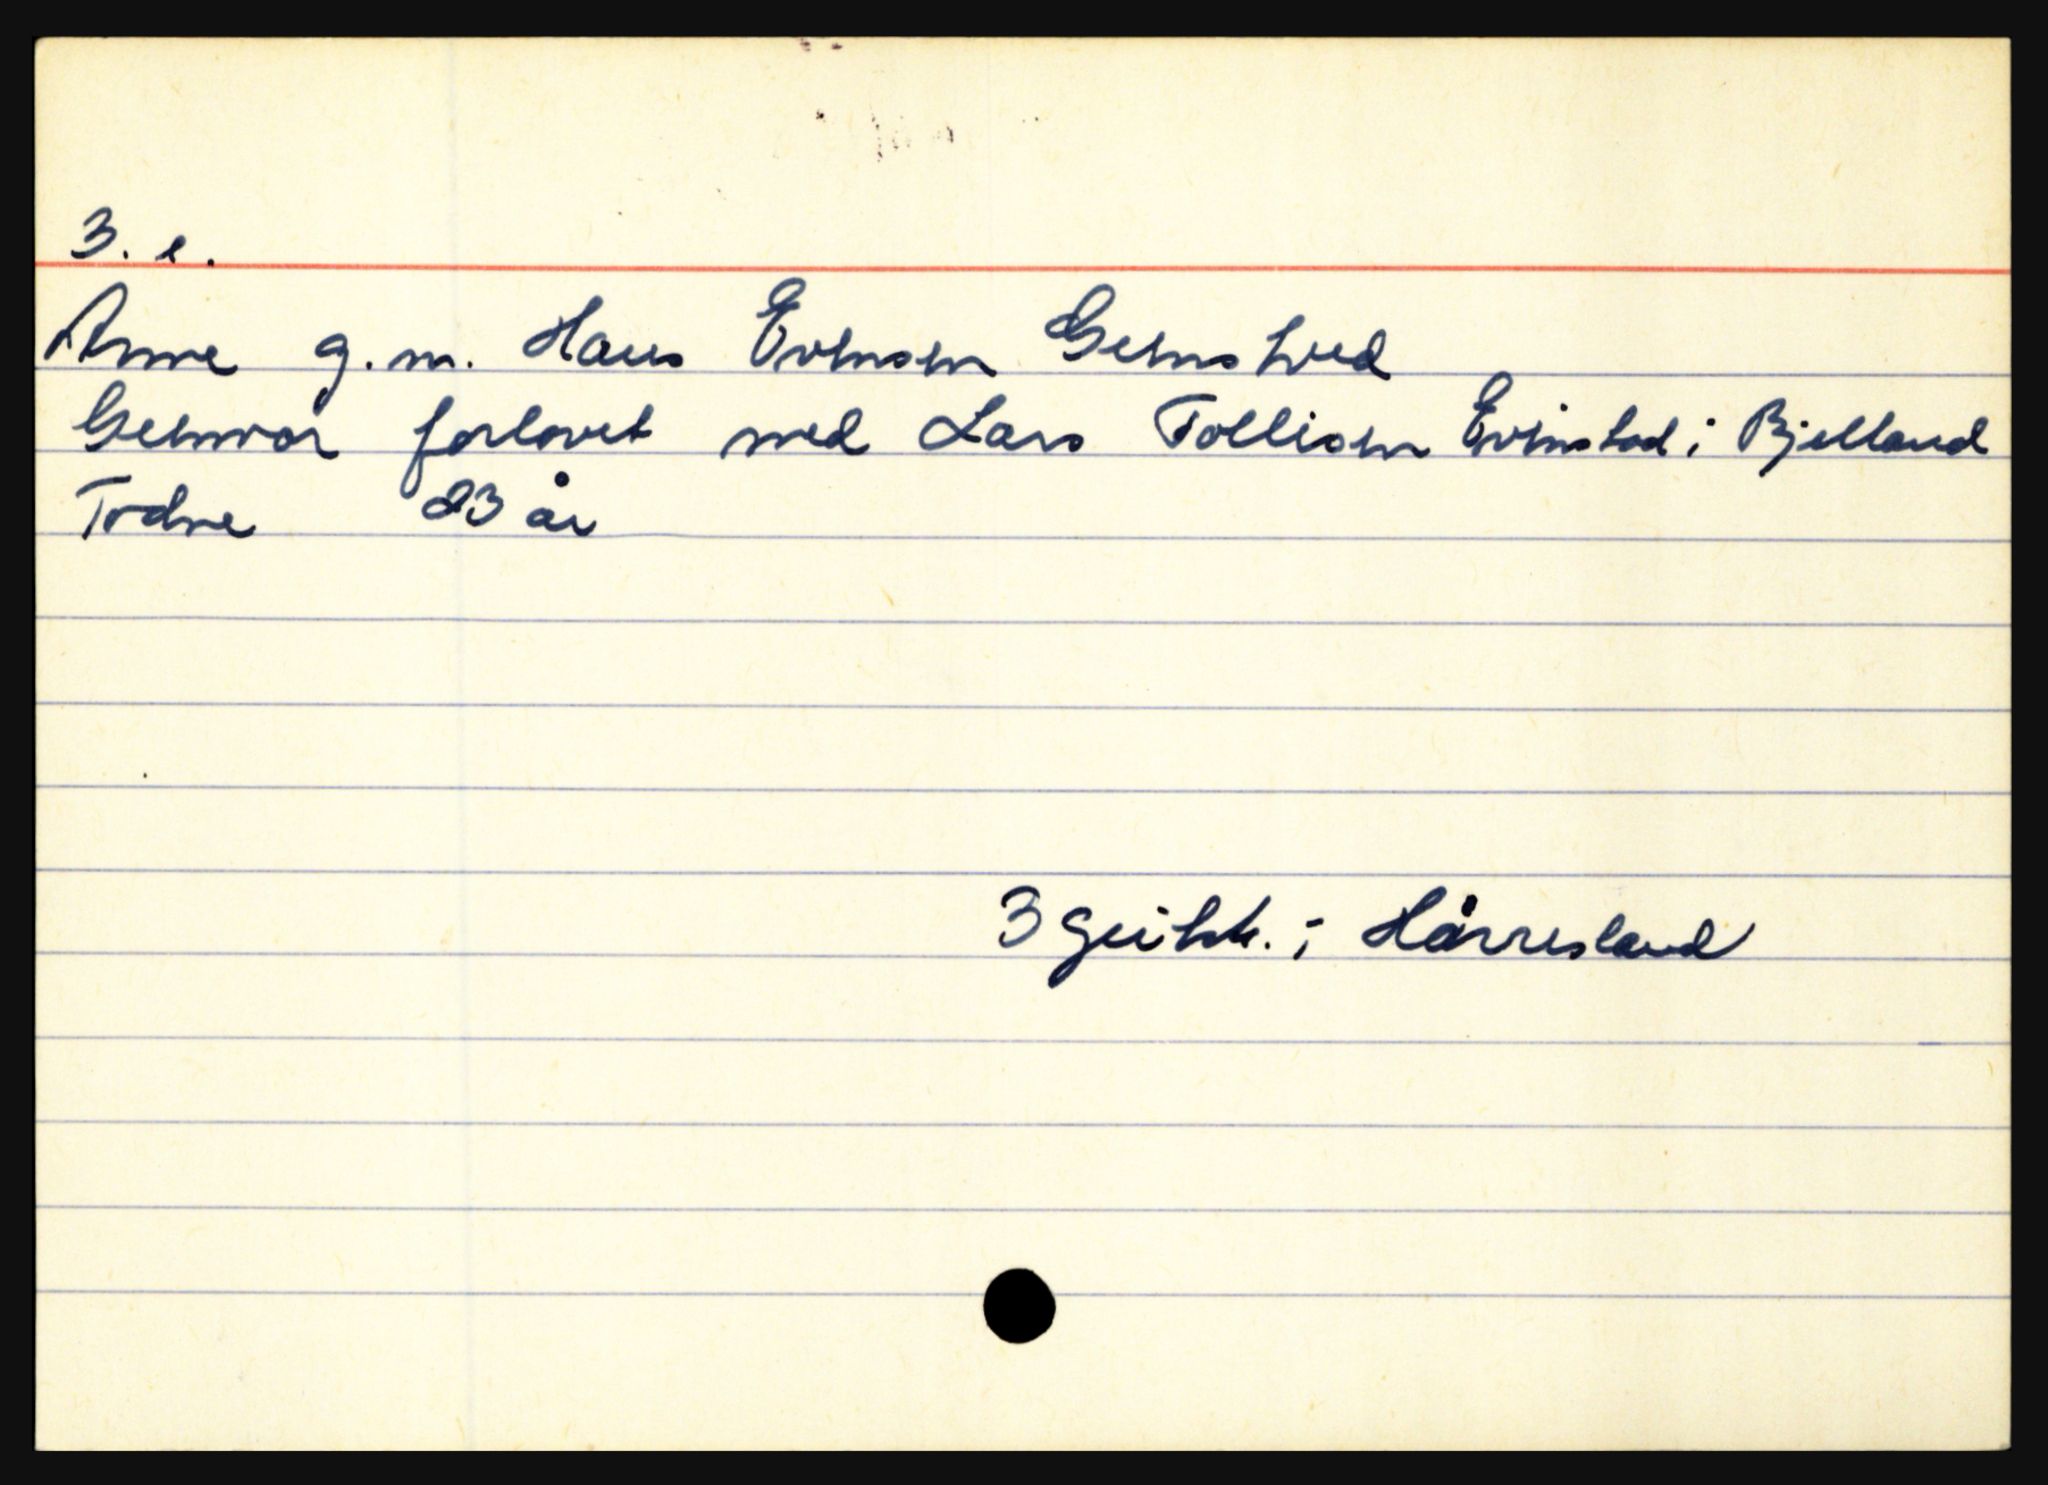 3. e.
Anne g.m. Hans Evensen Geenshved
Gunvor forlovet med Lars Tollisen Evinstad i Bjelland
Todne 23 år
3 geithk. i Hårresland